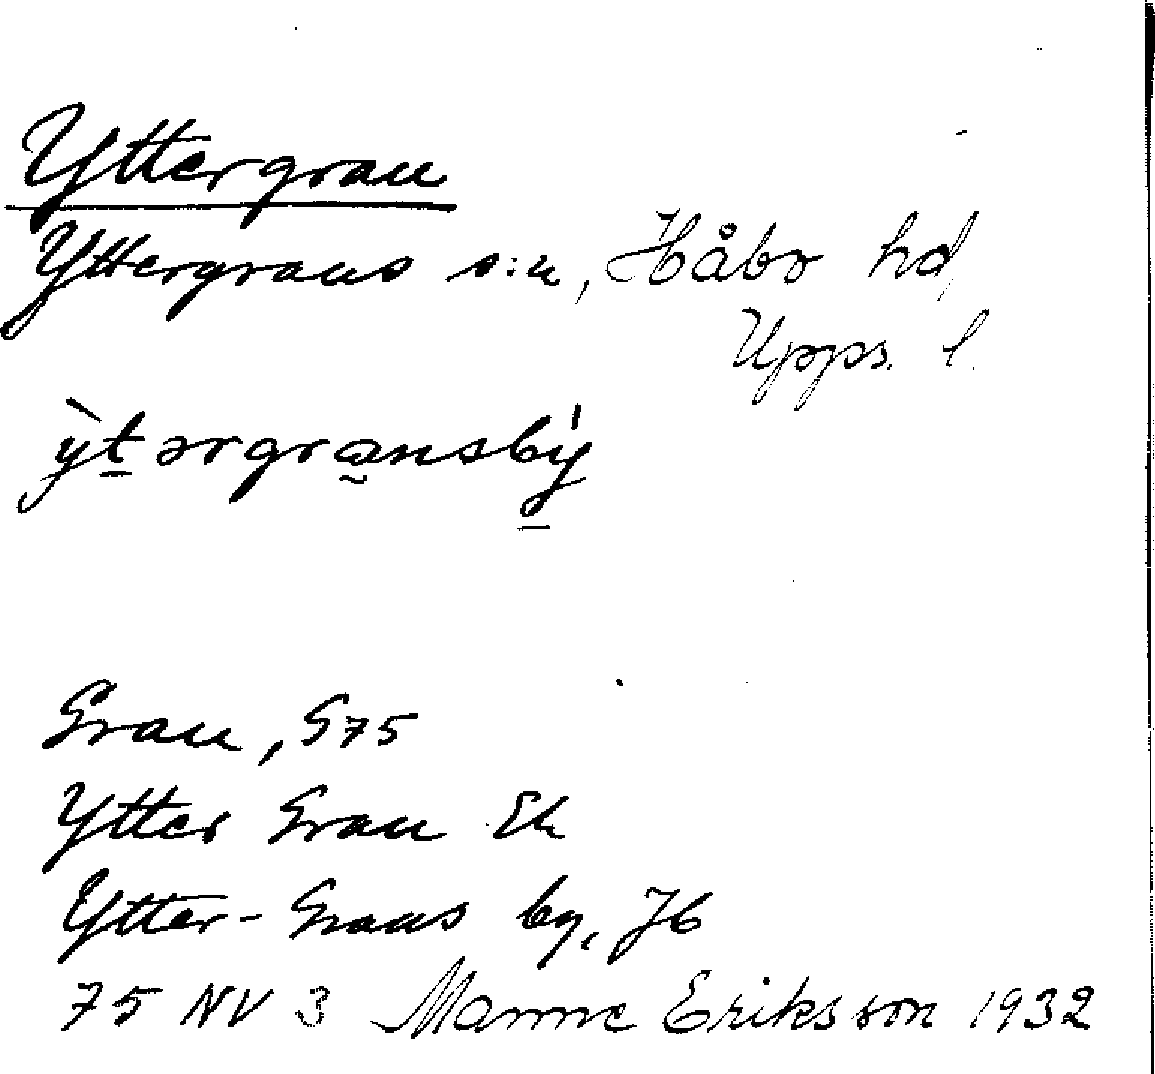 Yttergran
Yttergrans s:n, Håbo hd,
Upps. l.
y̍tərgra̰nsby̍
Gran, G75
Ytter Gran Ek
Ytter-Grans by, Jb
75 NV 3 Manne Eriksson 1932